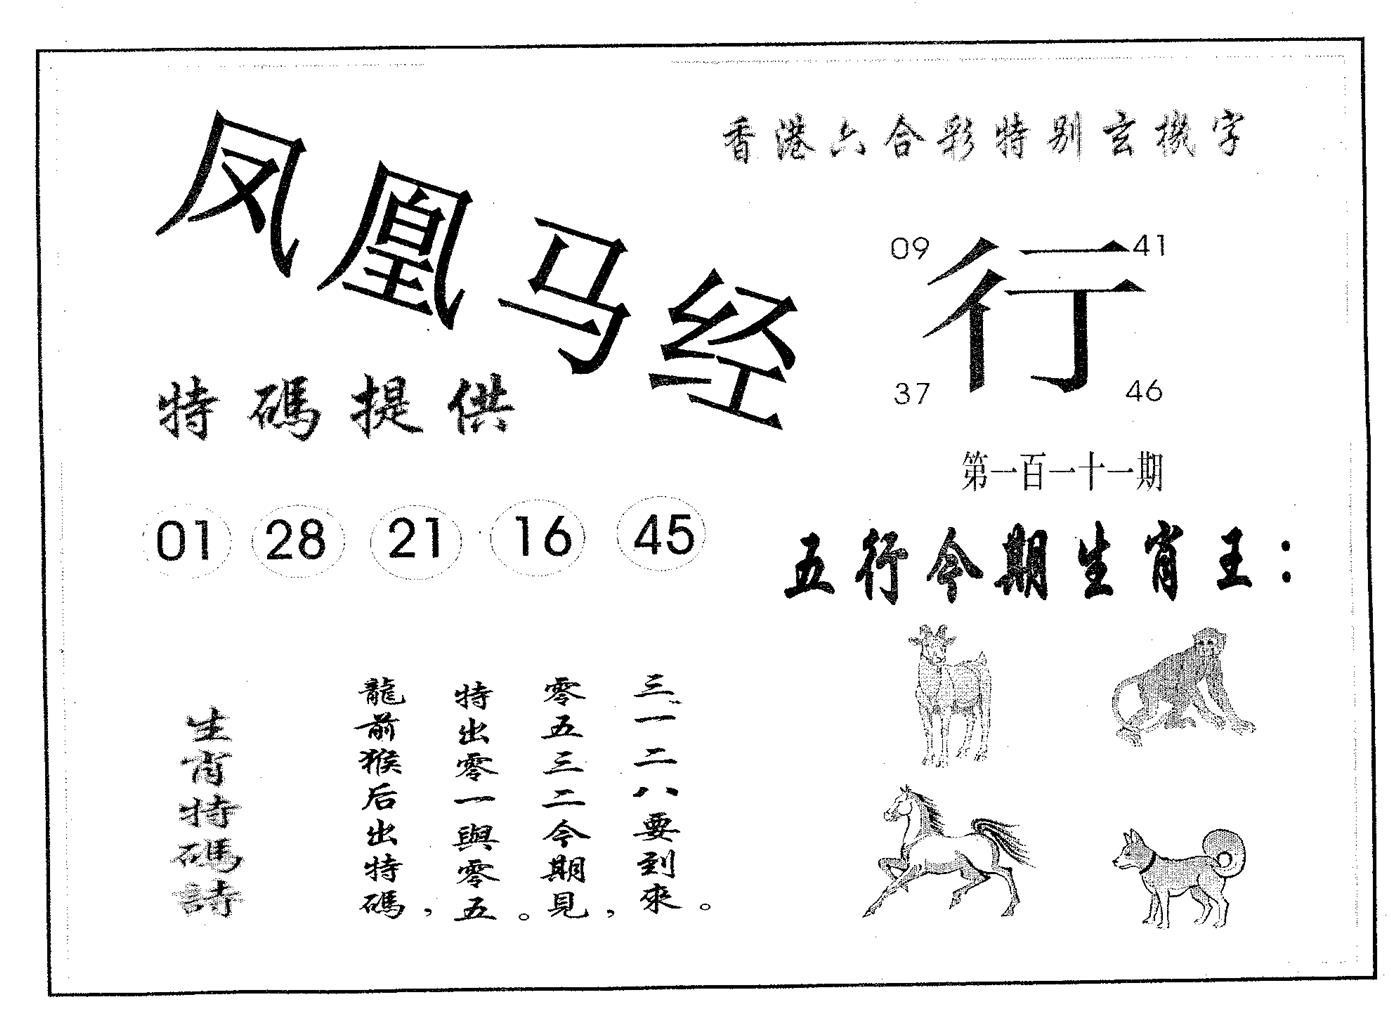 凤凰马经
香港六合彩特别玄機字
09
41
行
37
46
特碼提供
第一百一十一期
01 28 21 16 45
五行今期生肖王：
生肖特碼詩
龍前猴后出特碼，
特出零一與零五。
零五三二今期見，
三一二八要到來。